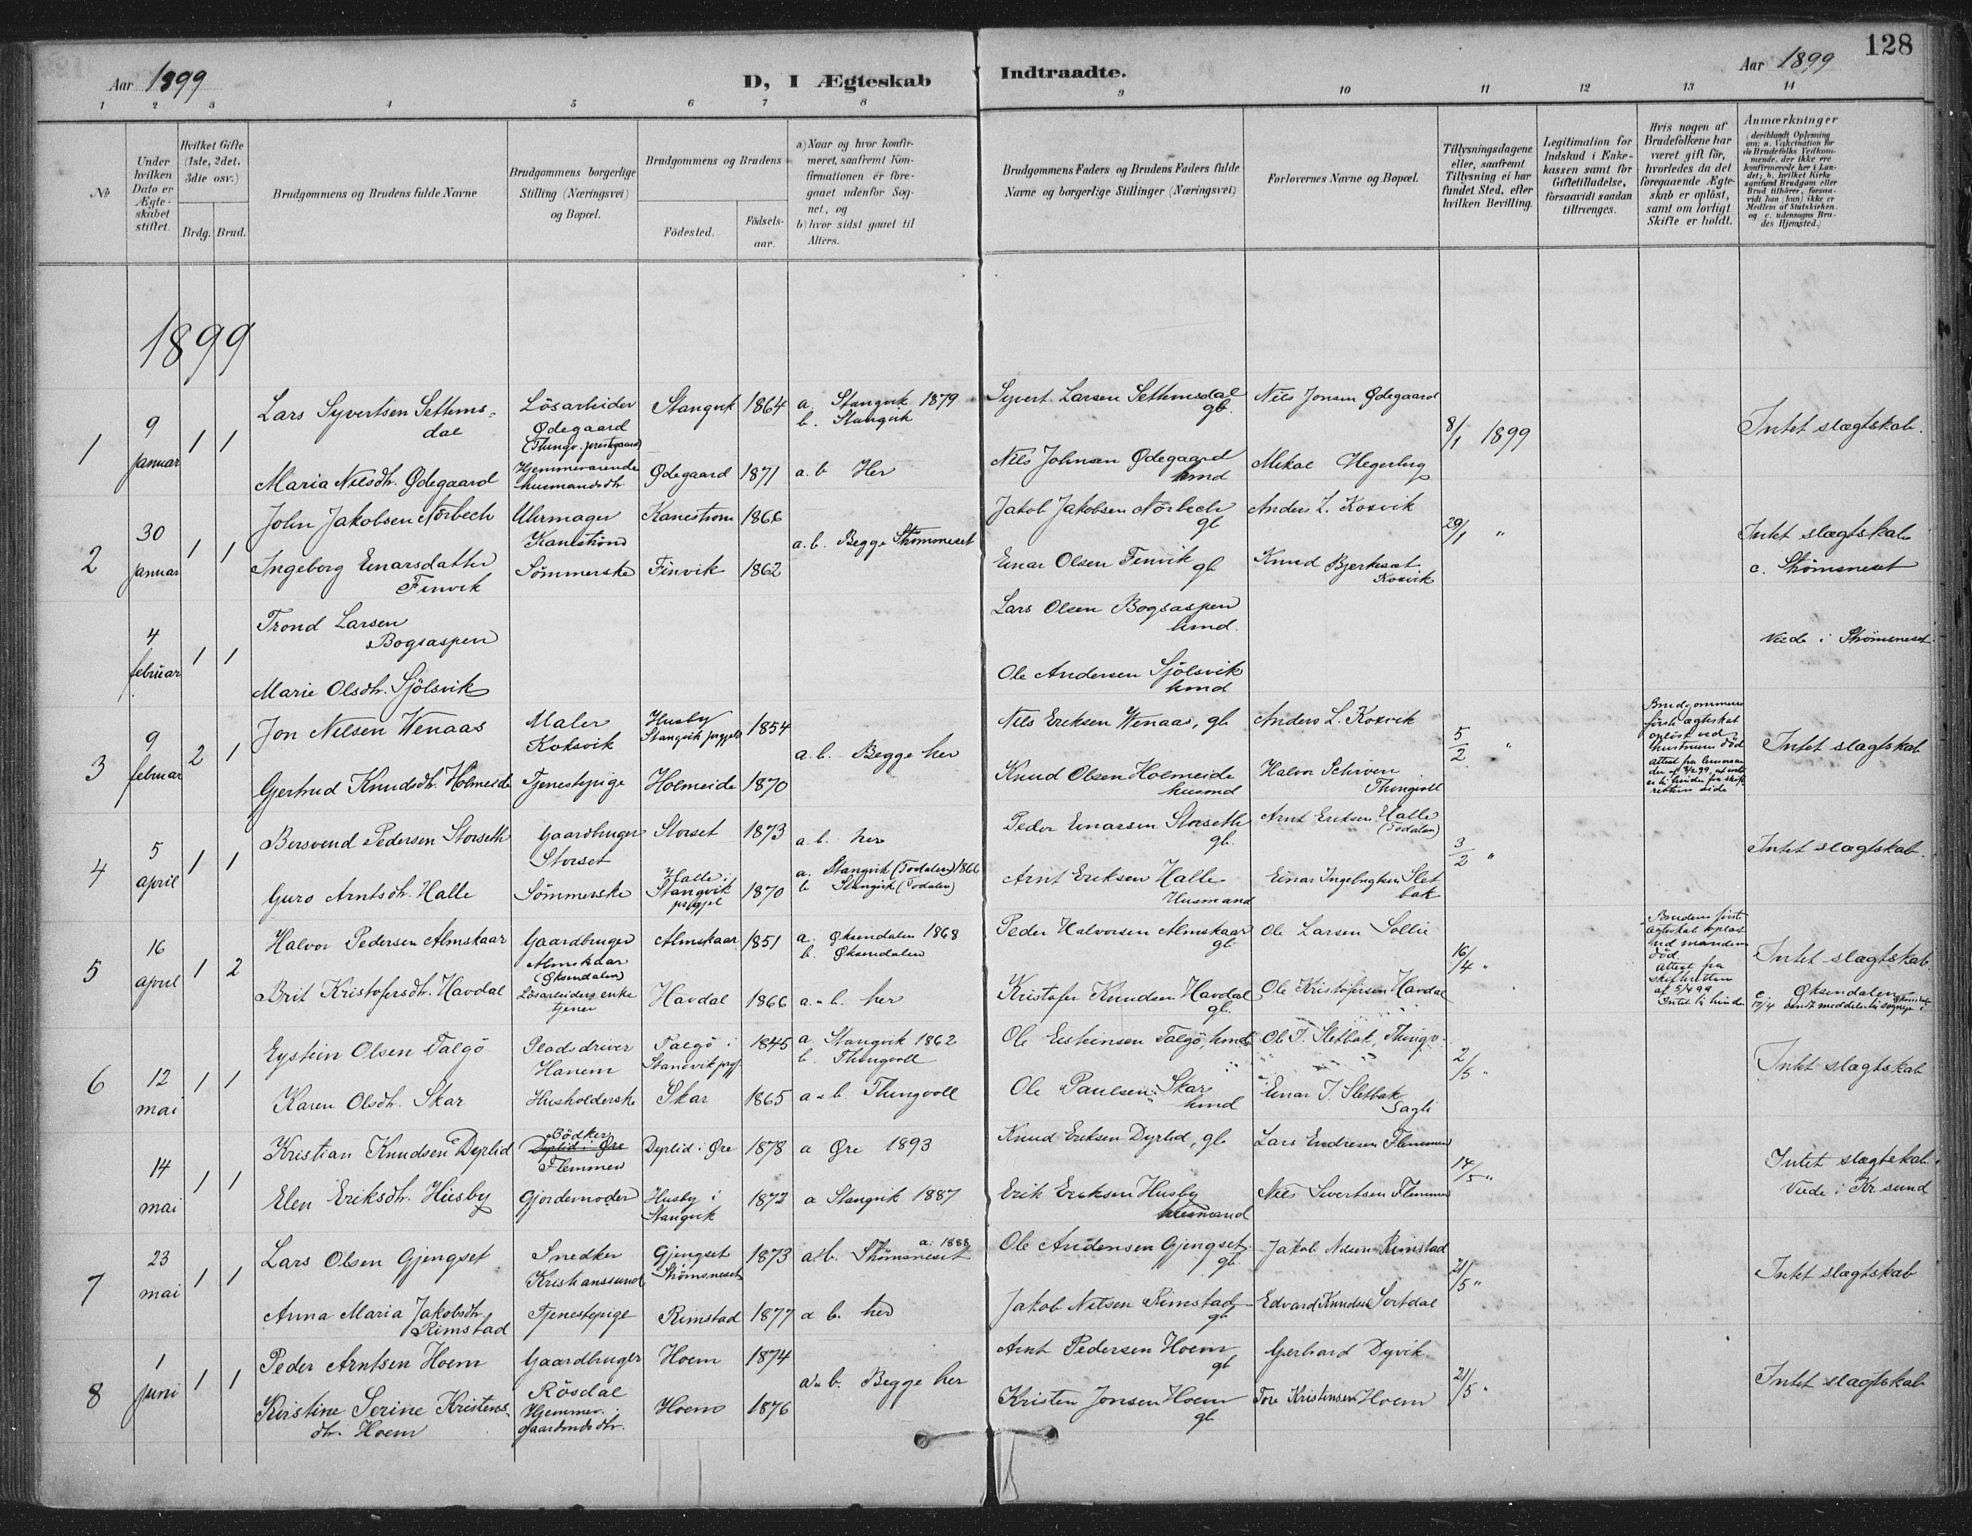 128
Aar 1899
D, I Ægteskab
Indtraadte.
Aar 1899
1 2 3 4 5 6 7 8 9 10 11 12 13 14
№
Under hvilken Dato er Ægteskabet stiftet.
Hvilket Gifte (1ste, 2det, 3die osv.)
Brdg. Brud.
Brudgommens og Brudens fulde Navne
Brudgommens borgerlige Stilling (Næringsvei) og Bopæl.
Brudgommens og Brudens
Födested.
Födsels-aar.
a) Naar og hvor konfirmeret, saafremt Konfirmationen er foregaaet udenfor Sognet, og
b) hvor sidst gaaet til Alters.
Brudgommens Faders og Brudens Faders fulde Navne og borgerlige Stillinger (Næringsvei)
Forlovernes Navne og Bopæl.
Tillysningsdagene eller, saafremt Tillysning ei har fundet Sted, efter hvilken Bevilling.
Legitimation for Indskud i Enkekassen samt for Giftetilladelse, forsaavidt saadan tiltrænges.
Hvis nogen af Brudefolkene har været gift för, hvorledes da det foregaaende Ægteskab er oplöst, samt om lovligt Skifte er holdt.
Anmærkninger
(deriblandt Oplysning om: a. Vakcination for de Brudefolks Vedkommende, der ikke ere konfirmerede her i Landet; b. hvilket Kirkesamfund Brudgom eller Brud tilhörer, forsaavidt han (hun) ikke er Medlem af Statskirken, og c. udensogns Brudes Hjemsted.)
1899
1
9 januar
1 1
Lars Syvertsen Settemsdal
Lösarbeider Ødegaard (Thingv. prestgaard)
Stangvik 1864
a. Stangvik 1879
b. Stangvik
Syvert Larsen Settemsdal gb.
Nils Jonsen Ødegaard
8/1 1899
Intet slægtskab.
Maria Nilsdtr. Ødegaard
Hjemmeværende husmandsdtr.
Ødegaard 1871
a. b Her
Nils Johnsen Ødegaard hmd
Mikal Hegerberg
2
30 januar
1 1
John Jakobsen Nörbech
Uhrmager Kanestrøm
Kanestrøm 1866
a. b. Begge Strømmeset
Jakob Jakobsen Nörbech gb
Anders L. Koksvik
29/1 "
Intet slægtskab
Ingeborg Einarsdatter Finvik
Sömmerske
Finvik 1862
Einar Olsen Finvik gb
Knud Bjerkeset Koksvik
c. Strømsneset
4 februar
1 1
Trond Larsen Bogsaspen
Lars Olsen Bogsaspen hmd.
Viede i Strømsneset
Marie Olsdtr. Sjölsvik
Ole Andersen Sjölsvik hmd
3
9 februar
2 1
Jon Nilsen Wenaas
Maler Koksvik
Husby Stangvik prgjeld 1854
a. b. Begge her
Nils Eriksen Wenaas, gb
Anders L. Koksvik
5/2 "
Brudgommens förste ægteskab oplöst ved hustruens död
Intet slægtskab
Gertrud Knudsdtr. Holmeide
Tjenestepige
Holmeide 1870
Knud Olsen Holmeide husmd
Halvor Schiven Thingvoll
4
5 april
1 1
Bersvend Pedersen Storseth
Gaardbruger Storset
Storset 1873
a. b. her
Peder Einarsen Storseth gb.
Arnt Eriksen Halle (Todalen)
3/2 "
Intet slægtskab.
Guro Arntsdtr. Halle
Sömmerske
Halle i Stangvik prgjel 1870
a. Stangvik (Todalen)
b Stangvik (Todalen)
Arnt Eriksen Halle Husmand
Einar Ingebrigtsen Sletbak
5
16 april
1 2
Halvor Pedersen Almskaar
Gaardbruger Almskaar (Øksendalen)
Almskaar 1851
a. Øksendalen 1868
b. Øksendalen
Peder Halvorsen Almskaar gb
Ole Larsen Sollie
16/4 "
Brudens förste ægteskab oplöst ved mandens död. Attest fra skifteretten af 5/4 99
Intet slægtskab
Brit Kristofersdtr. Havdal
Lösarbeiders enke
Havdal 1866
a - b. her
Kristofer Knudsen Havdal gb.
Ole Kristofersen Havdal
c. Øksendalen
6
12 mai
1 1
Eystein Olsen Talgö
Pladsdriver Hanem
Talgö i Stangvik prgj. 1845
a Stangvik 1862
b. Thingvoll
Ole Eisteinsen Talgö, hmd
Ole T. Sletbak, Thingv.
2/5 "
Intet slægtskab
Karen Olsdtr. Skar
Husholderske
Skar 1865
a - b. Thingvoll
Ole Paulsen Skar hmd
Einar I. Sletbak Sagli
14 mai
1 1
Kristian Knudsen Dyrlid
Bödker Flemmen
Dyrlid i Øre 1878
a Øre 1893
Knud Eriksen Dyrlid, gb
Lars Endresen Flemmen
14/5 "
Intet slægtskab.
Elen Eriksdtr. Husby
Gjordemoder
Husby i Stangvik 1872
a Stangvik 1887
Erik Eriksen Husby husmand
Nils Sivertsen Flemmen
Viede i Kr.sund
7
23 mai
1 1
Lars Olsen Gjengset
Snedker Kristianssund
Gjengset Strømsneset 1873
a - b. Strømsneset a. 1888
Ole Andersen Gjengset gb.
Jakob Nilsen Rimstad
21/5 "
Intet slægtskab
Anna Maria Jakobsdtr. Rimstad
Tjenestepige
Rimstad 1877
a b. her
Jakob Nilsen Rimstad gb
Edvard Knudsen Sortdal
8
1 juni
1 1
Peder Arntsen Hoem
Gaardbruger Rösdal
Hoem 1874
a - b. Begge her
Arnt Pedersen Hoem gb
Gerhard Dyvik
21/5 "
Intet slægtskab
Kirstine Serine Kristensdtr. Hoem
Hjemmev. gaardmdsdtr.
Hoem 1876
Kristen Jonsen Hoem gb.
Tore Kristensen Hoem